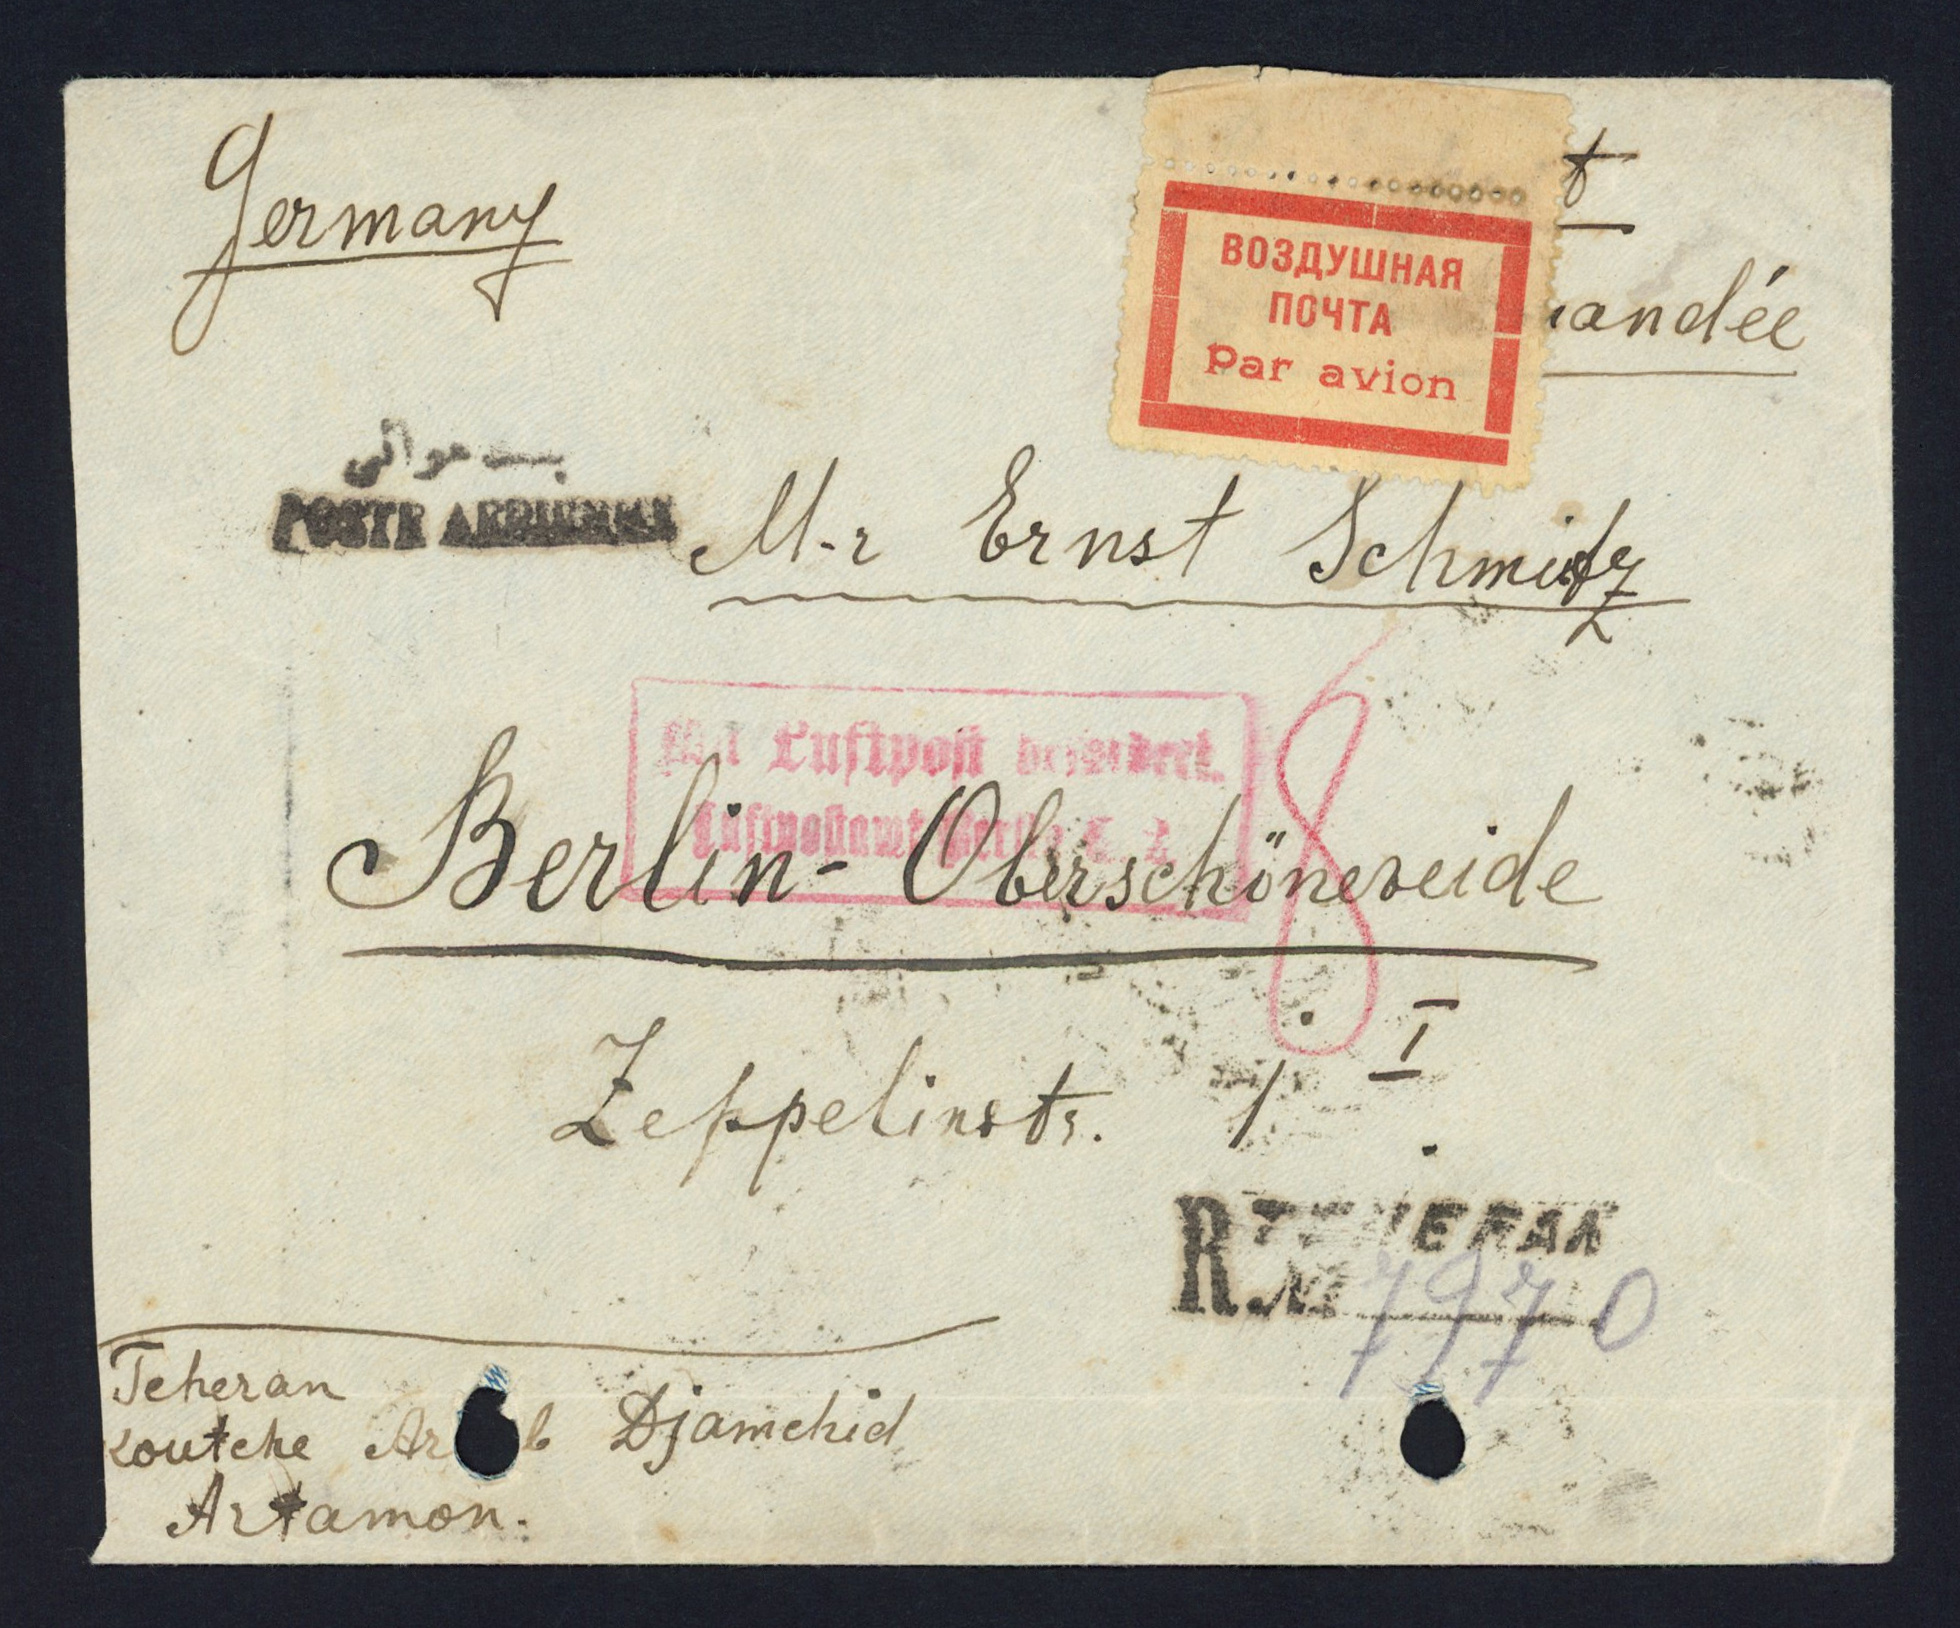 Germany
ВОЗДУШНАЯ
ПОЧТА
par avion
andée
پست هوائی
POSTE AERIENNE
M-r Ernst Schmitz
Mit Luftpost befördert.
Luftpostamt Berlin C. 2
Berlin- Oberschöneweide
8
Zeppelinstr. 1 I
R TEHERAN
№ 7970
Teheran
Koutche Ar b Djamchid
Artamon.